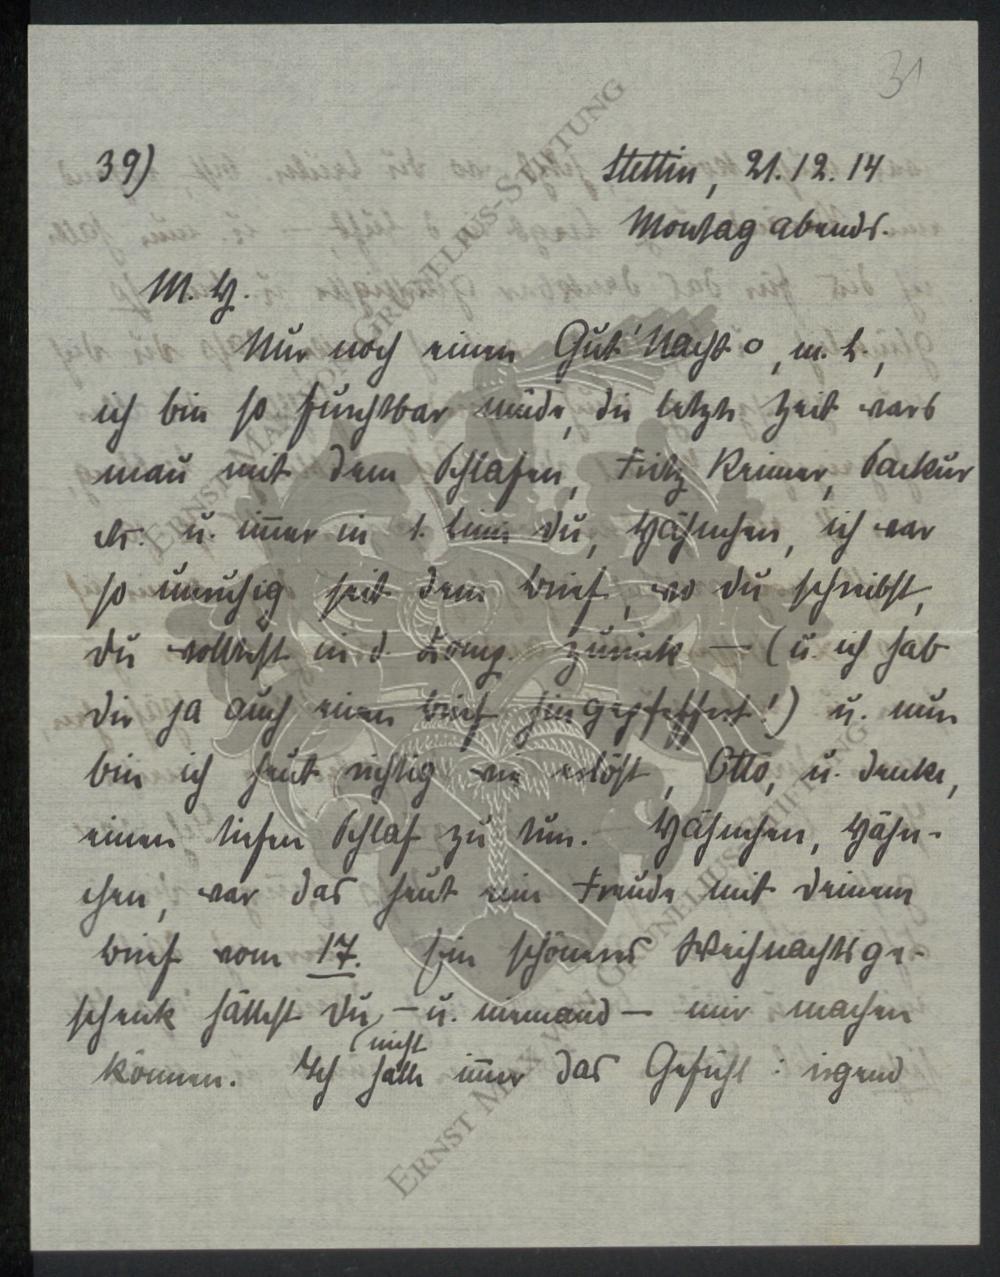 31
39)
Stettin, 21.12.14
Montag abends.
M. H.
Nur noch einen Gut' Nacht o, m. L,
ich bin so furchtbar müde, die letzte Zeit wars
mau mit dem Schlafen, Fritz Reimer,
etc. u. im̄er in 1. Linie Du, Hähnchen, ich war
so unruhig seit dem Brief, wo Du schreibst,
Du wolltest in d. Komp. zurück — (u. ich hab
Dir ja auch einen Brief hingepfeffert!) u. nun
bin ich heut richtig wie erlöst, Otto, u. denke,
einen tiefen Schlaf zu tun. Hähnchen, Hähn-
chen, war das heut eine Freude mit Deinem
Brief vom 17. Ein schöneres Weihnachtsge-
schenk hättest Du, – u. niemand — mir machen
nicht
können. Ich hatte im̄er das Gefühl: irgend
ERNST MAX VON GRUNELIUS-STIFTUNG
ERNST MAX VON GRUNELIUS-STIFTUNG